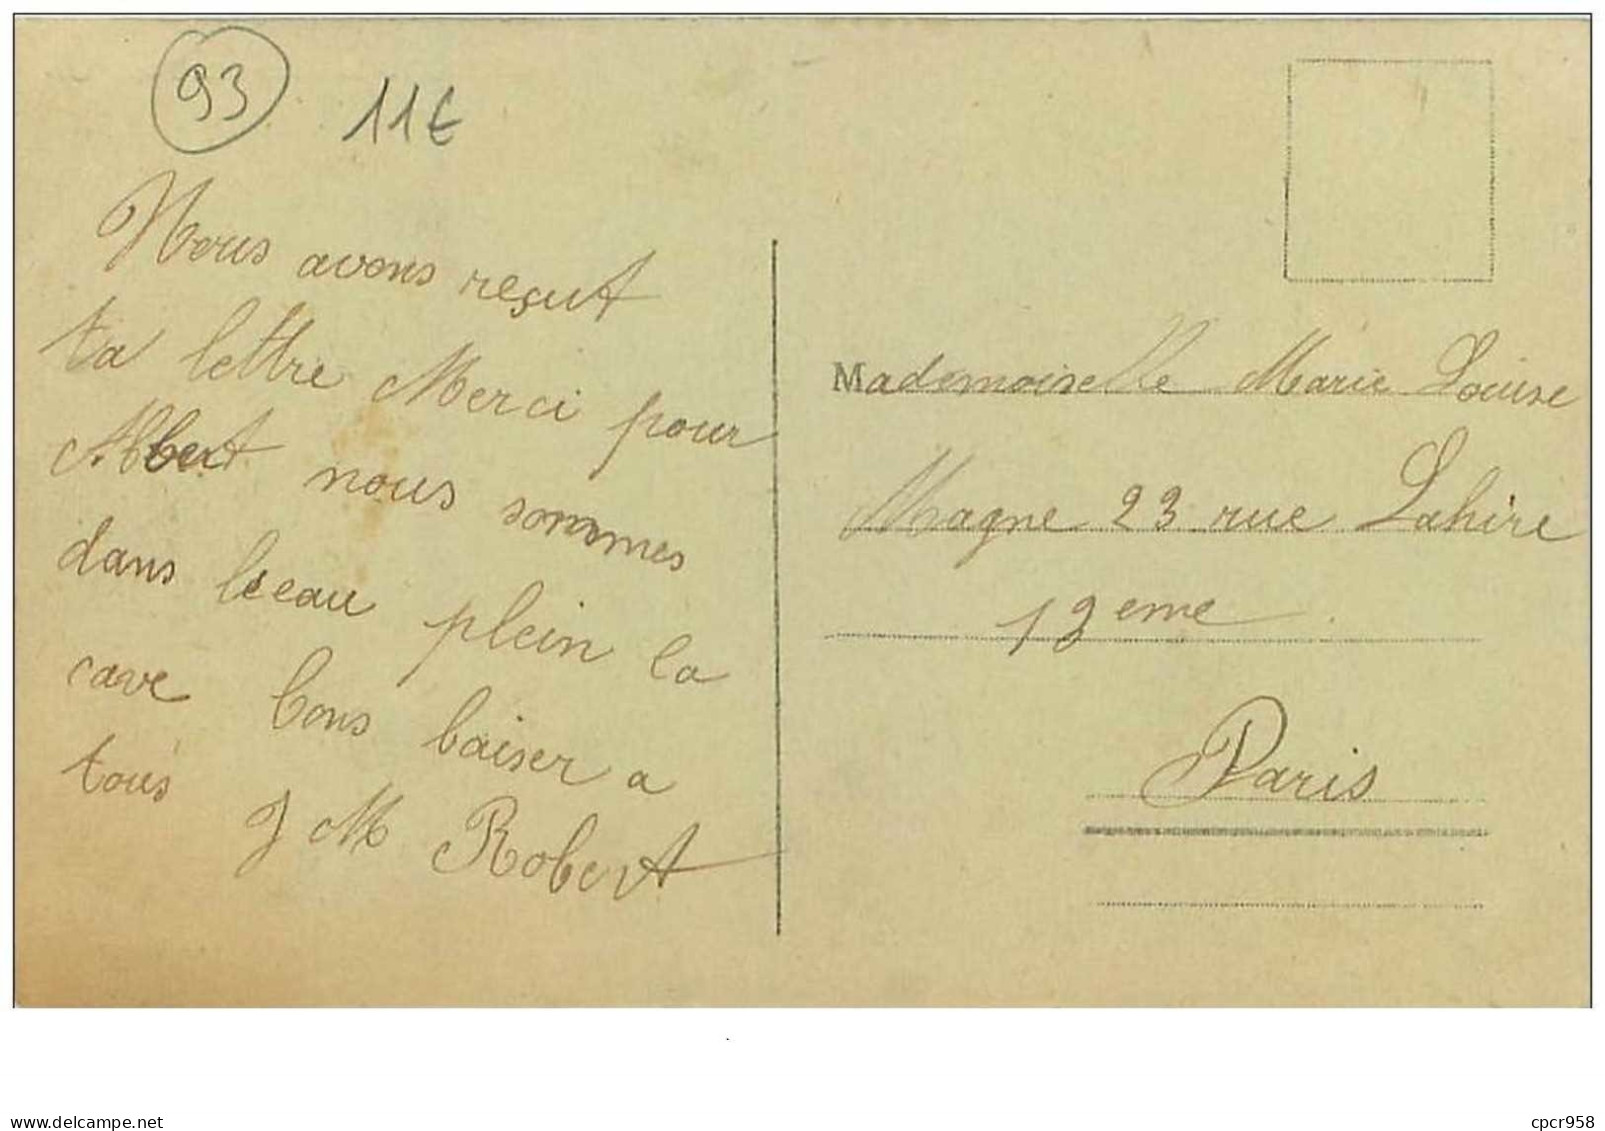 93
11€
Nous avons reçut
ta lettre Merci pour
Albert nous sommes
dans leeau plein la
cave bons baiser a
tous
J M Robert
Mademoiselle Marie Louise
Magne 23 rue Lahire
13eme
Paris
delcampe.net
cpcr958